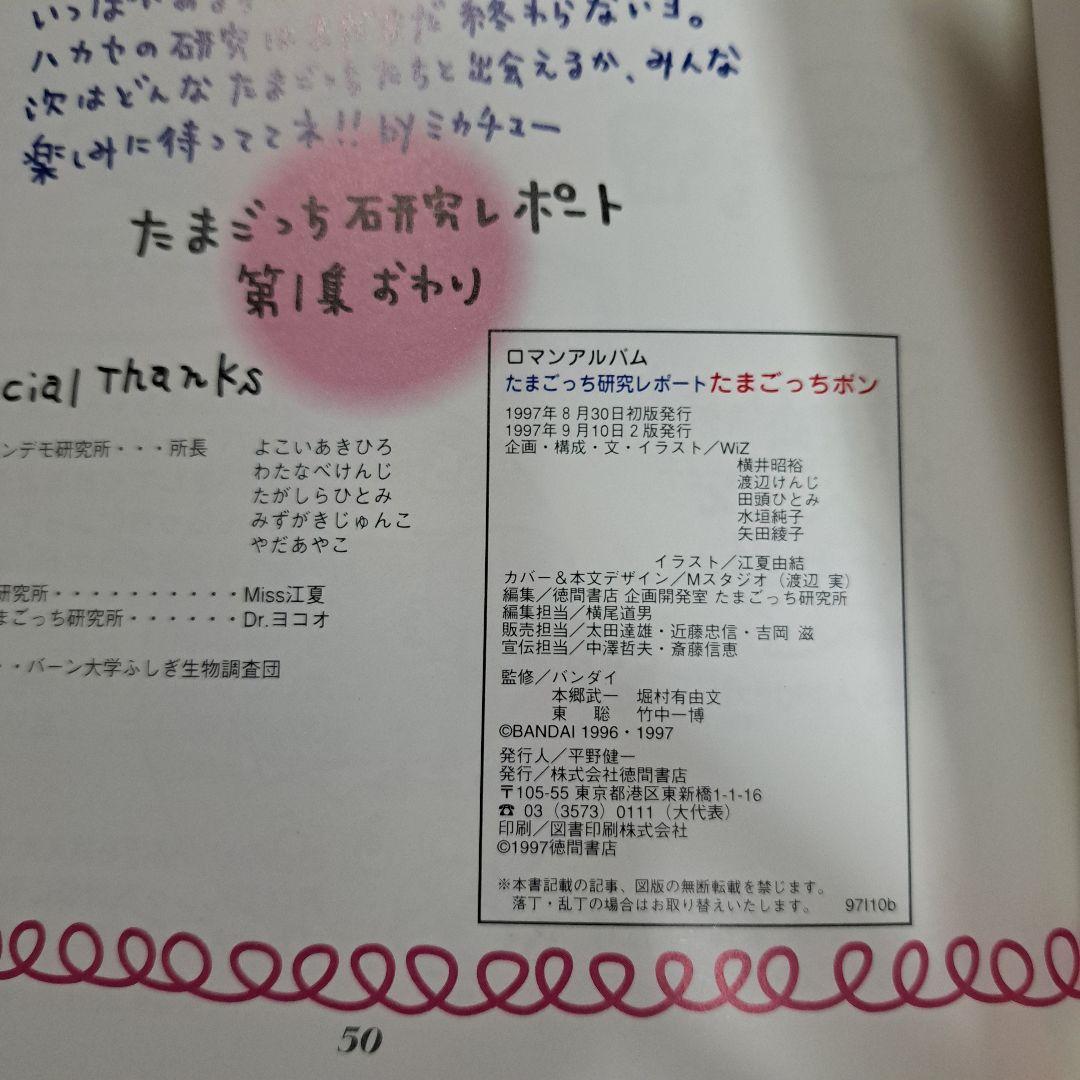 ハカセの研究はまだまだ終わらないヨ。
次はどんなたまごっちたちと出会えるか、みんな
楽しみに待っててネ!! by ミカチュー
たまごっち研究レポート
第1集 おわり
cial Thanks
ンデモ研究所・・・所長 よこいあきひろ
わたなべけんじ
たがしらひとみ
みずがきじゅんこ
やだあやこ
研究所・・・・・・・・・・Miss江夏
まごっち研究所・・・・・・Dr.ヨコオ
・・バーン大学ふしぎ生物調査団
ロマンアルバム
たまごっち研究レポートたまごっちポン
1997年8月30日初版発行
1997年9月10日2版発行
企画・構成・文・イラスト/WiZ
横井昭裕
渡辺けんじ
田頭ひとみ
水垣純子
矢田綾子
イラスト/江夏由結
カバー&本文デザイン/Mスタジオ(渡辺 実)
編集/徳間書店 企画開発室 たまごっち研究所
編集担当/横尾道男
販売担当/太田達雄・近藤忠信・吉岡 滋
宣伝担当/中澤哲夫・斎藤信恵
監修/バンダイ
本郷武一 堀村有由文
東 聡 竹中一博
©BANDAI 1996・1997
発行人/平野健一
発行/株式会社徳間書店
〒105-55 東京都港区東新橋1-1-16
☎ 03(3573)0111(大代表)
印刷/図書印刷株式会社
©1997徳間書店
※本書記載の記事、図版の無断転載を禁じます。
落丁・乱丁の場合はお取り替えいたします。 97I10b
50